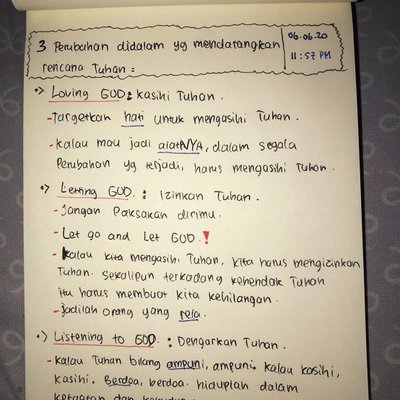 3 Perubahan didalam yg mendatangkan
rencana Tuhan :
06.06.20
11:57 PM
•> Loving GOD : Kasihi Tuhan.
- Targetkan hati untuk mengasihi Tuhan.
- Kalau mau jadi alatNYA, dalam segala
Perubahan yg terjadi, harus mengasihi Tuhan.
•> Letting GOD. : Izinkan Tuhan.
- Jangan Paksakan dirimu.
- Let go and Let GOD.!
- Kalau kita mengasihi Tuhan, kita harus mengizinkan
Tuhan. Sekalipun terkadang kehendak Tuhan
itu harus membuat kita kehilangan.
- Jadilah orang yang rela.
•> Listening to GOD. : Dengarkan Tuhan.
- Kalau Tuhan bilang ampuni, ampuni. Kalau kasihi,
kasihi. Berdoa, berdoa. hiduplah dalam
ketaatan dan